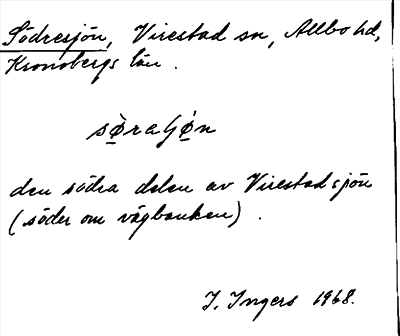 Södresjön, Virestad sn, Allbo hd,
Kronobergs län.
søraʃøn
den södra delen av Virestadsjön
(söder om vägbanken).
I. Ingers 1968.